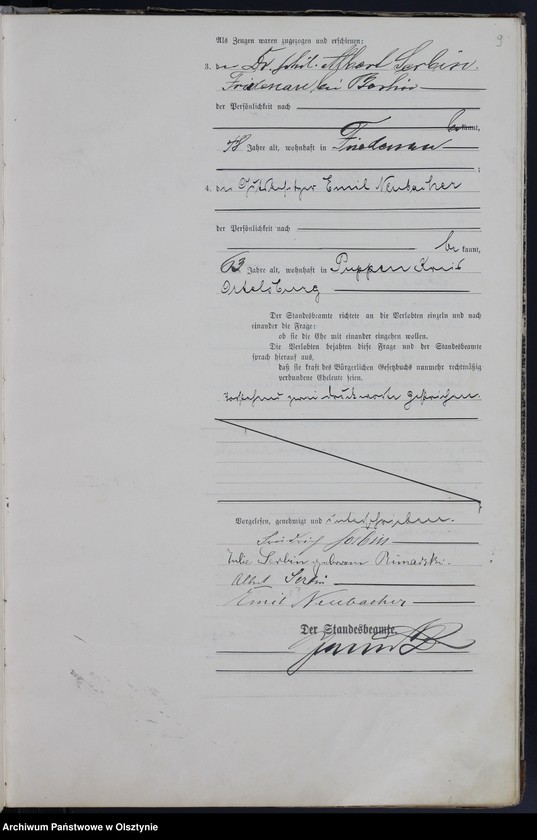 9
Als Zeugen waren zugezogen und erschienen:
3. der Dr. phil. Albert Serbin.
Friedenau bei Berlin
der Persönlichkeit nach
bekannt,
Jahre alt, wohnhaft in Friedenau
;
4. der Gutsbesitzer Emil Neubacher
der Persönlichkeit nach
be kannt,
63 Jahre alt, wohnhaft in Puppen Kreis
Ortelsburg
Der Standesbeamte richtete an die Verlobten einzeln und nach
einander die Frage:
ob sie die Ehe mit einander eingehen wollen.
Die Verlobten bejahten diese Frage und der Standesbeamte
sprach hierauf aus,
daß sie kraft des Bürgerlichen Gesetzbuchs nunmehr rechtmäßig
verbundene Eheleute seien.
Vorstehend zwei Druckworte gestrichen.
Vorgelesen, genehmigt und unterschrieben.
Friedrich Serbin
Julie Serbin geborene
Albert Serbin
Emil Neubacher
Der Standesbeamte.
Archiwum Państwowe w Olsztynie